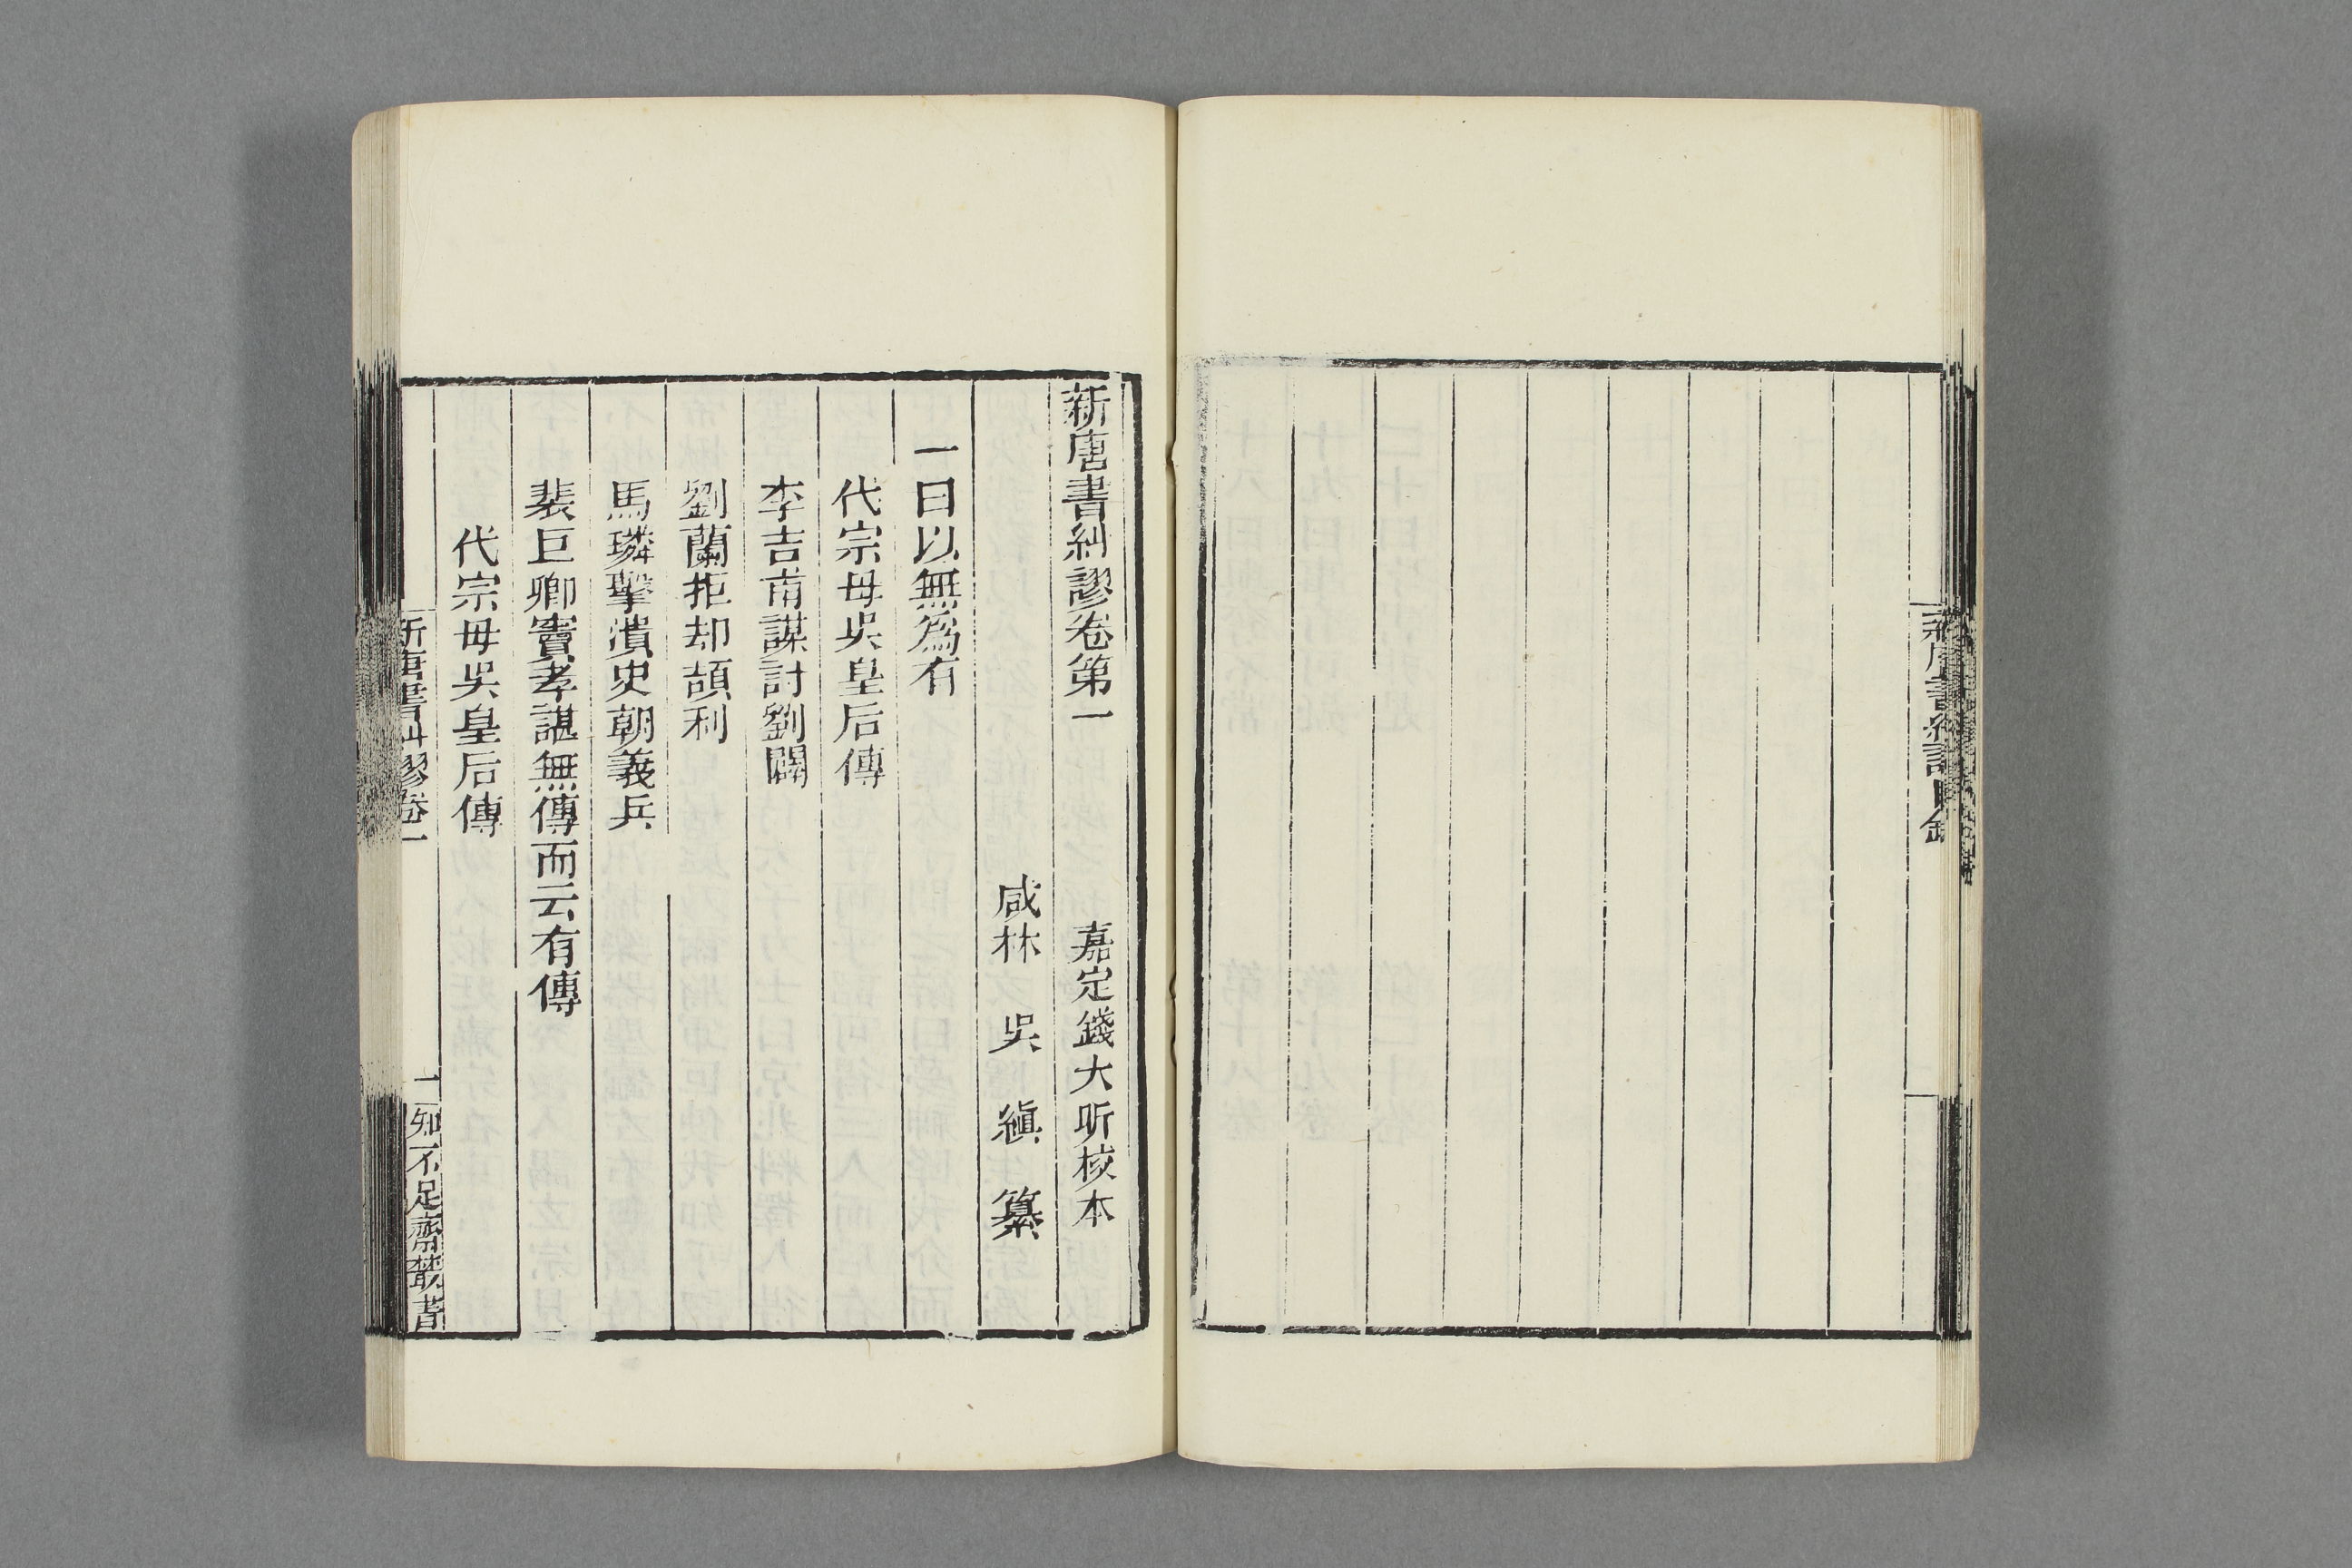 新唐書糾謬目錄
新唐書糾謬卷第一　嘉定錢大昕校本
咸林　吳　縝　纂
一曰以無爲有
代宗母吳皇后傳
李吉甫謀討劉闢
劉蘭拒却頡利
馬璘擊潰史朝義兵
裴巨卿竇孝諶無傳而云有傳
代宗母吳皇后傳
新唐書糾謬卷一　一　知不足齋叢書